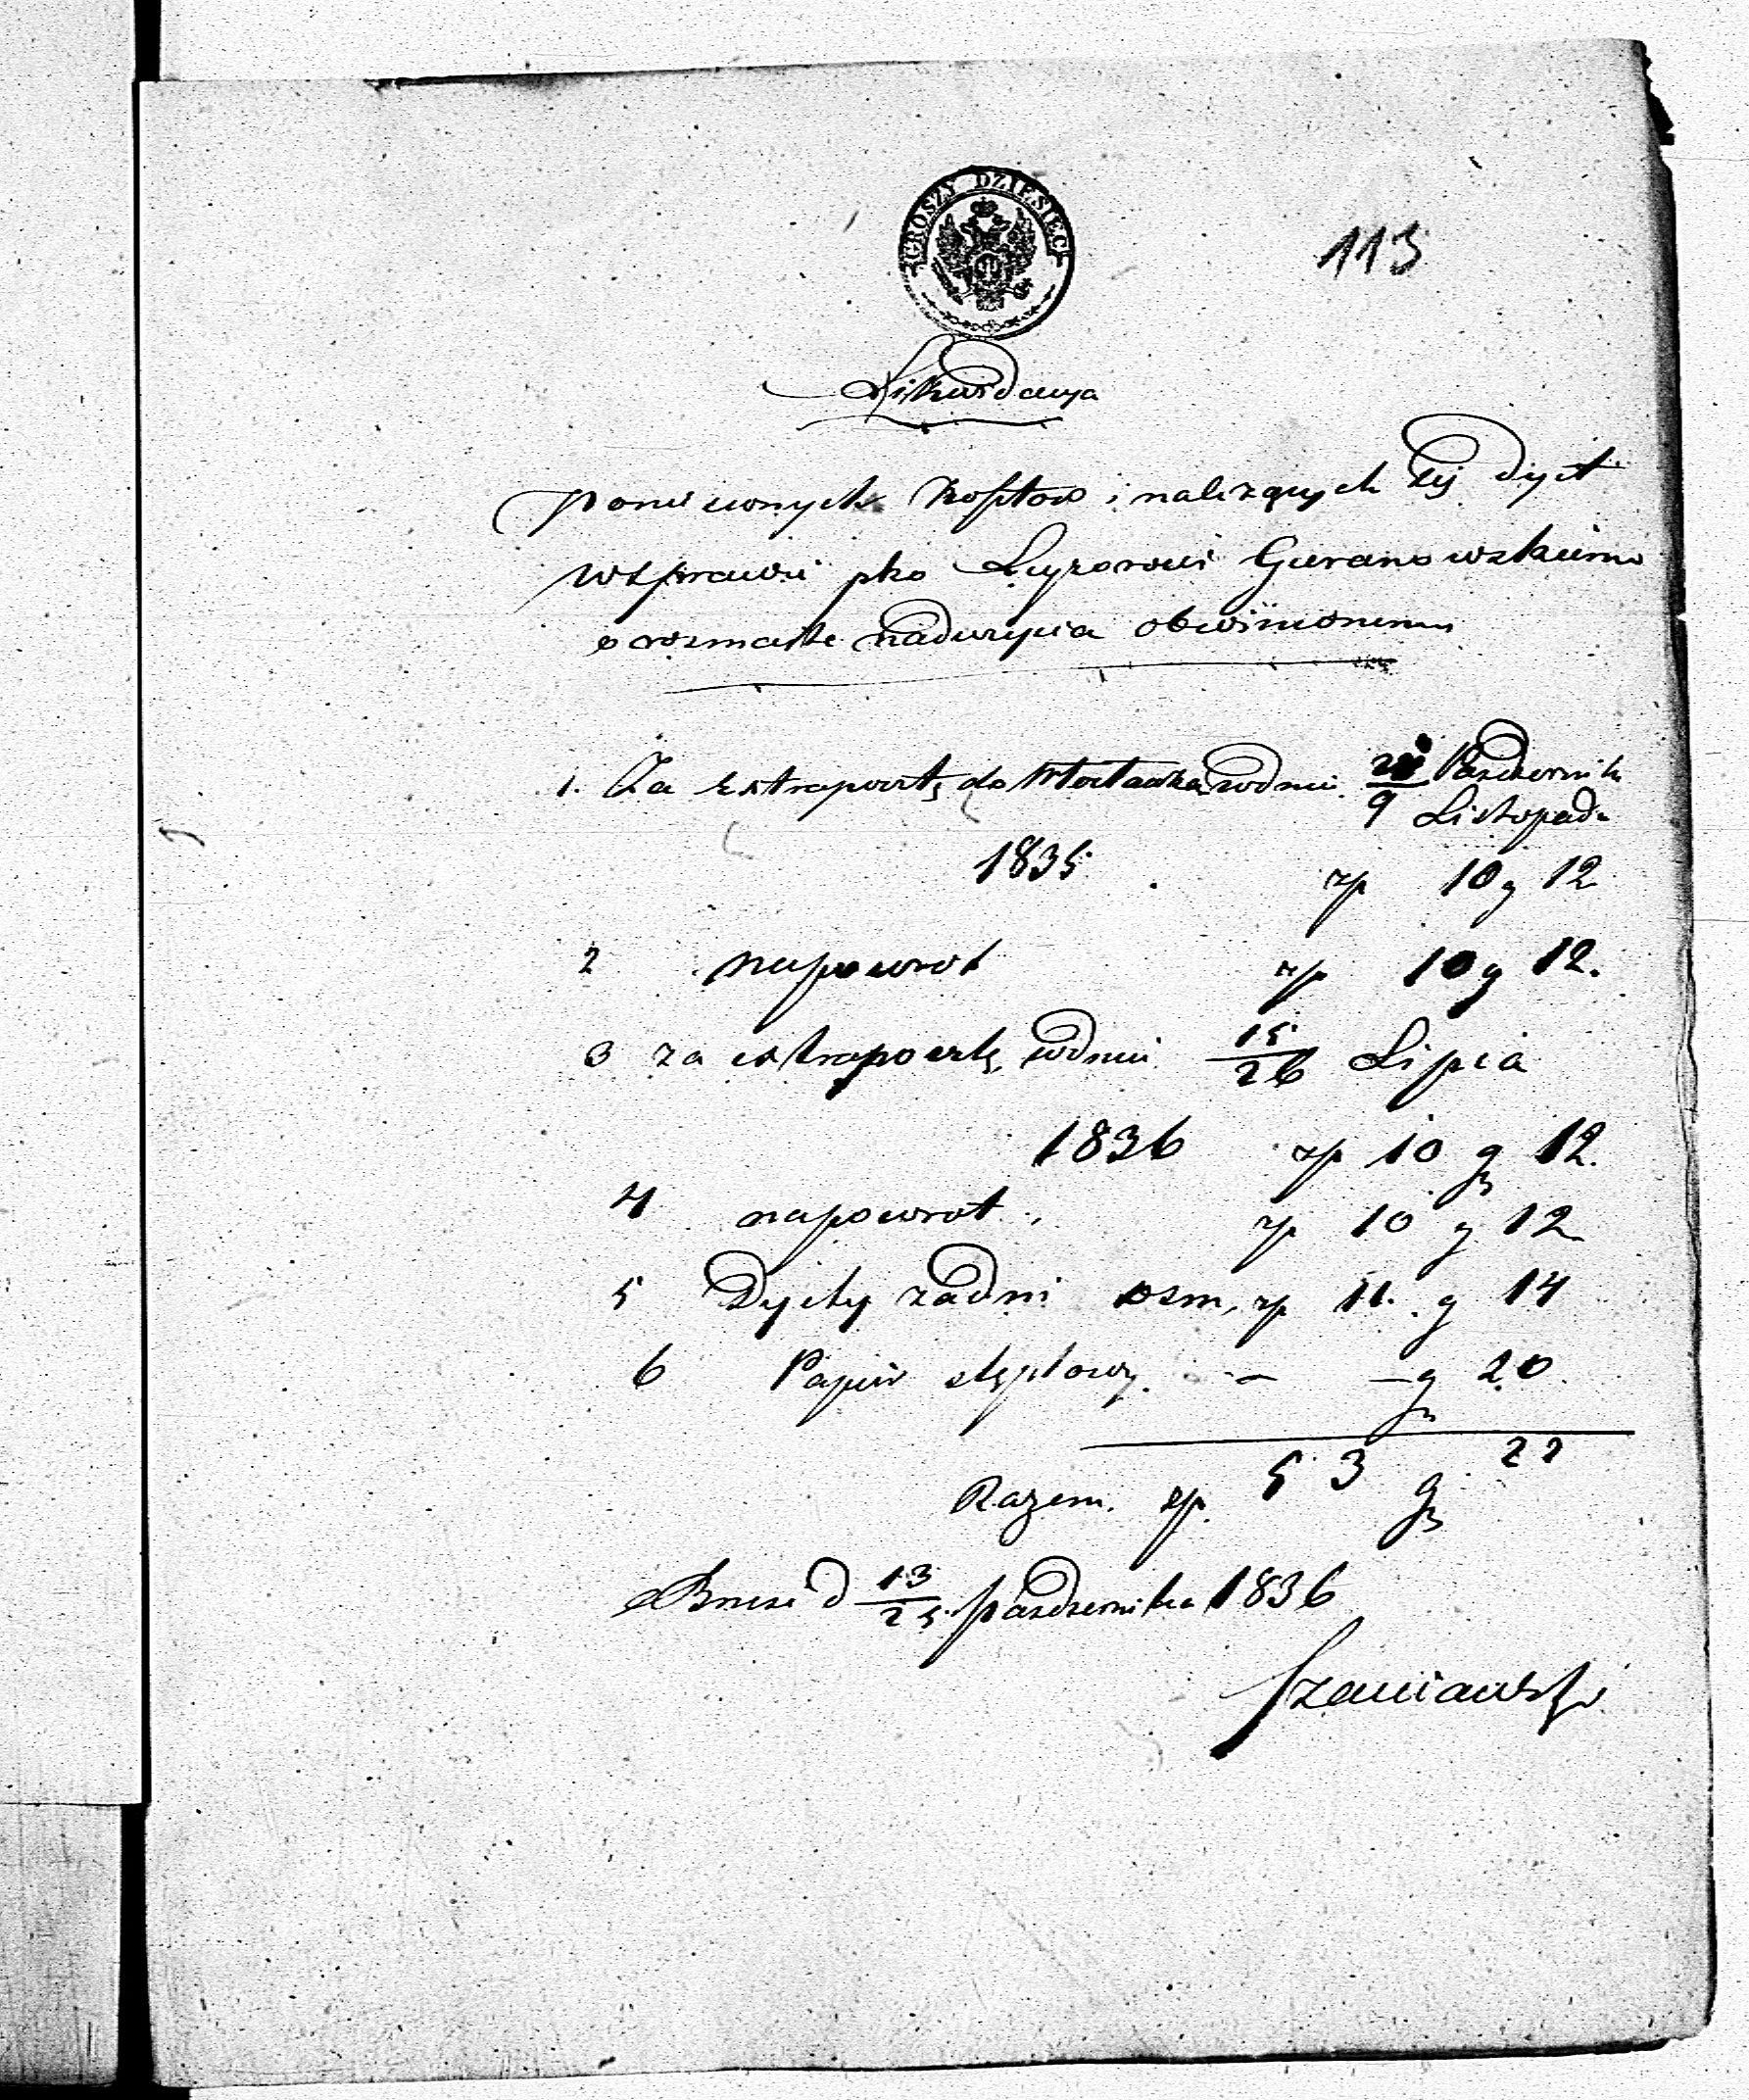 GROSZY DZIESIĘĆ
113
Likwidacya
Poniesionych kosztow i należących się dyet
w sprawie pko Leyzorowi Guranowskiemu
o rozmaite nadużycia obwinionemu
1. Za extrapocztę do Włocławka w dniu 28/9 Października Listopada
1835 zp 10 g 12
2 napowrot zp 10 g 12.
3 za extrapocztę w dniu 15/26 Lipca
1836 zp 10 g 12.
4 napowrot zp 10 g 12
5 Dyety za dni osm, zp 11. g 14
6 Papier stęplowy. — — g 20
Razem. zp. 53 g 22
Brześć d 13/25 października 1836
Szaniawski